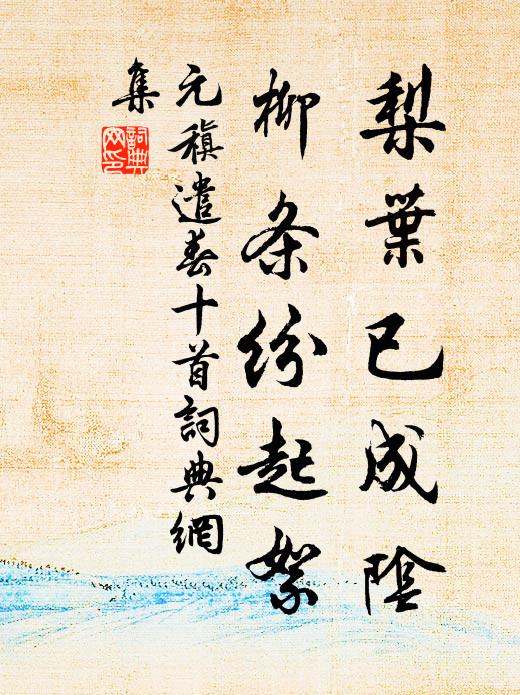 梨葉已成陰
柳条紛起絮
元稹遣春十首詞典網
集
詞典網印